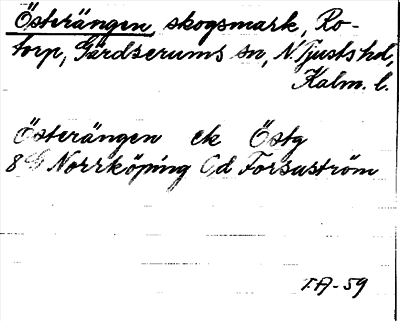 Österängen, skogsmark, Ro-
torp, Gärdserums sn, N. Tjusts hd,
Kalm. l.
Österängen ek Östg
8G Norrköping Cd Forsaström
T.A-59